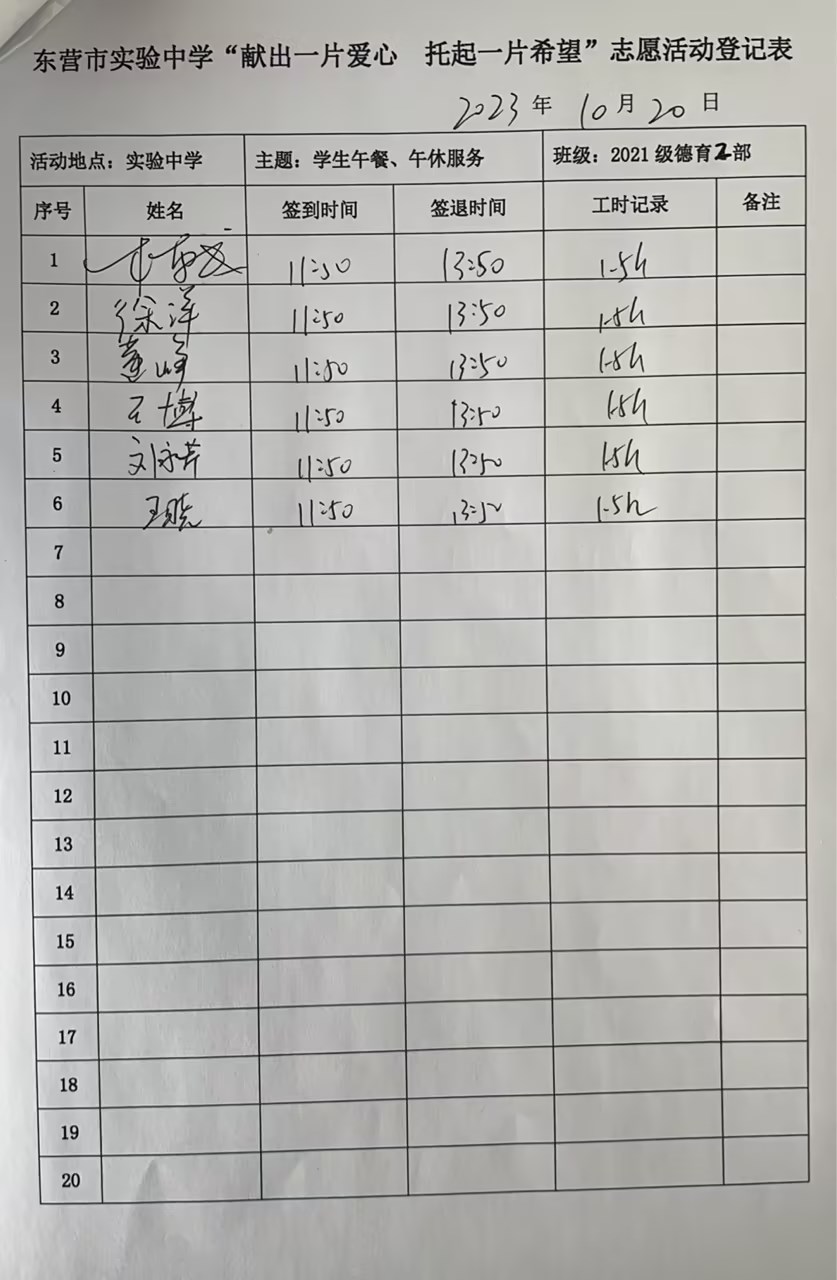 东营市实验中学“献出一片爱心 托起一片希望”志愿活动登记表
2023年 10月20日
活动地点：实验中学 主题：学生午餐、午休服务 班级：2021级德育2部
序号 姓名 签到时间 签退时间 工时记录 备注
1 11:50 13:50 1.5h
2 徐洋 11:50 13:50 1.5h
3 董峰 11:50 13:50 1.5h
4 王博 11:50 13:50 1.5h
5 刘永芹 11:50 13:50 1.5h
6 王晓 11:50 13:50 1.5h
7
8
9
10
11
12
13
14
15
16
17
18
19
20